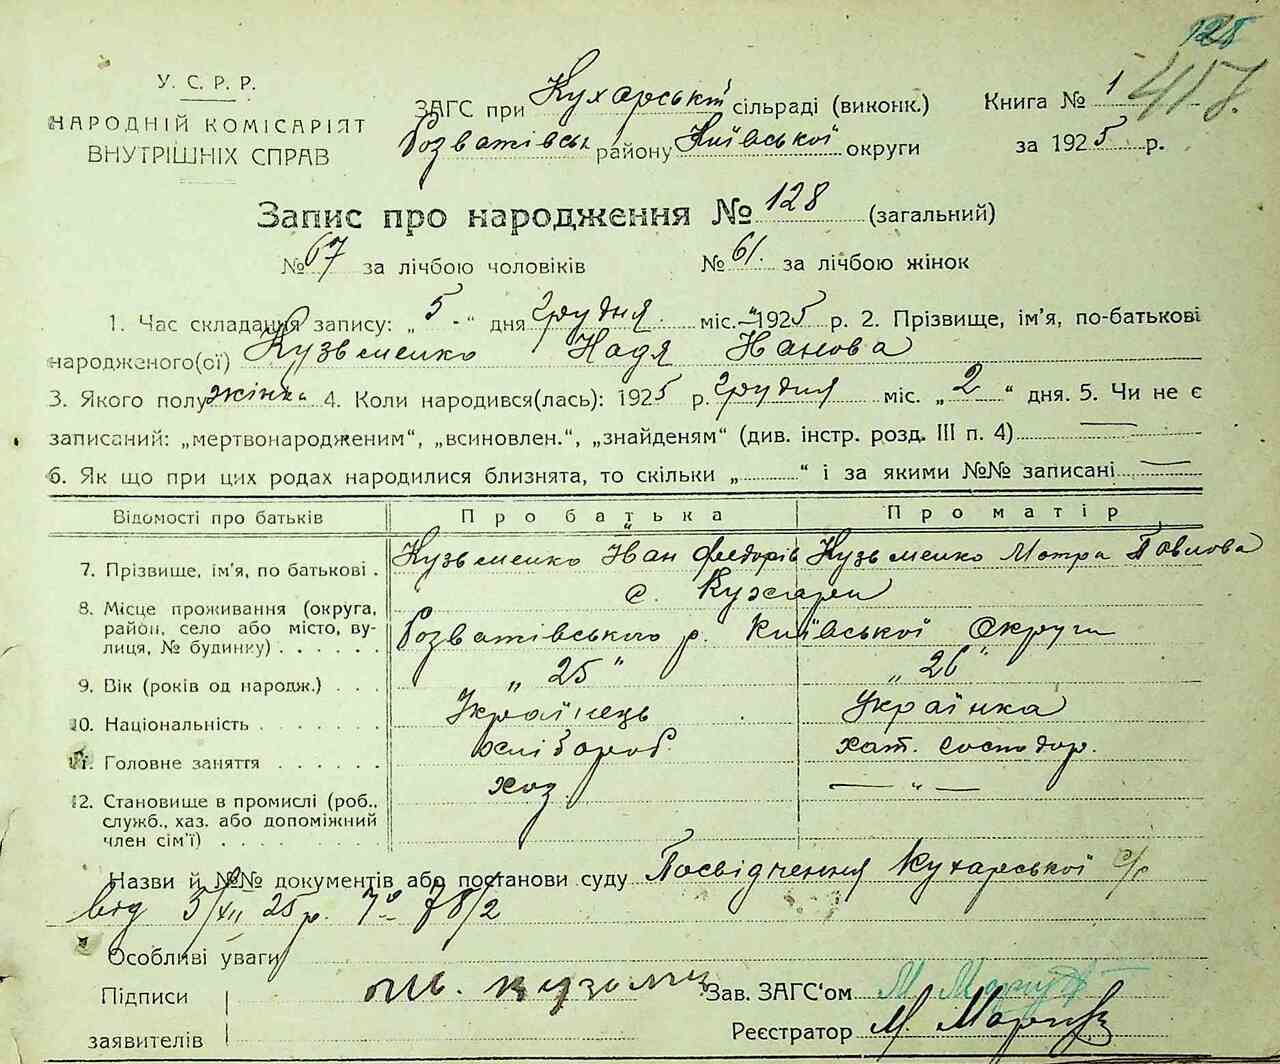 128
417.
У. С. Р. Р.
НАРОДНІЙ КОМІСАРІЯТ
ВНУТРІШНІХ СПРАВ
ЗАГС при Кухарській сільраді (виконк.)
Розватівськ району Київської округи
Книга № 1
за 1925 р.
Запис про народження № 128 (загальний)
№ 67 за лічбою чоловіків № 61. за лічбою жінок
1. Час складання запису: „ 5 -" дня Грудня міс. 1925 р. 2. Прізвище, ім'я, по-батькові
народженого(ої) Кузьменко Надя Іванова
3. Якого полу жінка 4. Коли народився(лась): 1925 р. Грудня міс. „ 2 " дня. 5. Чи не є
записаний: „мертвонародженим", „всиновлен.", „знайденям" (див. інстр. розд. III п. 4) —
6. Як що при цих родах народилися близнята, то скільки „ " і за якими №№ записані —
Відомості про батьків Про батька Про матір
7. Прізвище, ім'я, по батькові . Кузьменко Іван Федорів Кузьменко Мотря Павлова
8. Місце проживання (округа, район, село або місто, вулиця, № будинку) . . . . . . с. Кухари
Розватівського р. Київської Округи
9. Вік (років од народж.) . . . „ 25 " „ 26 "
10. Національність . . . . . . . Українець Українка
11. Головне заняття . . . . . . хлібороб. хат. господор.
12. Становище в промислі (роб., служб., хаз. або допоміжний член сім'ї) . . . . . . . . хоз — „ —
Назви й №№ документів або постанови суду Посвідчення Кухарської с/р
від 5/XII 25 р. № 78/2
Особливі уваги
Підписи
заявителів
Зав. ЗАГС'ом М.
Реєстратор М.